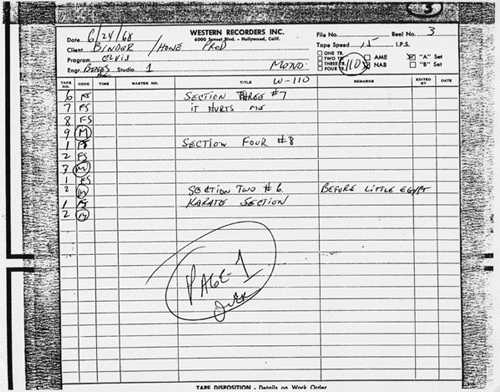 3
WESTERN RECORDERS INC.
6000 Sunset Blvd. - Hollywood, Calif.
Date 6/24/68
File No. Reel No. 3
Client BINDER / HOWE PROD
Tape Speed 15 I.P.S.
Program ELVIS
ONE TR. TWO TR. THREE TR. FOUR TR. 110 AME NAB "A" Set "B" Set
Engr. BONES Studio 1 MONO
W-110
TAKE NO. CODE TIME MASTER NO. TITLE REMARKS EDITED BY DATE
6 FS SECTION THREE #7
7 FS IT HURTS ME
8 FS
9 M
1 FS SECTION FOUR #8
2 FS
3 M
1 FS
2 M SECTION TWO #6 BEFORE LITTLE EGYPT
1 FS KARATE SECTION
2 M
PAGE-1
TAPE DISPOSITION - Details on Work Order